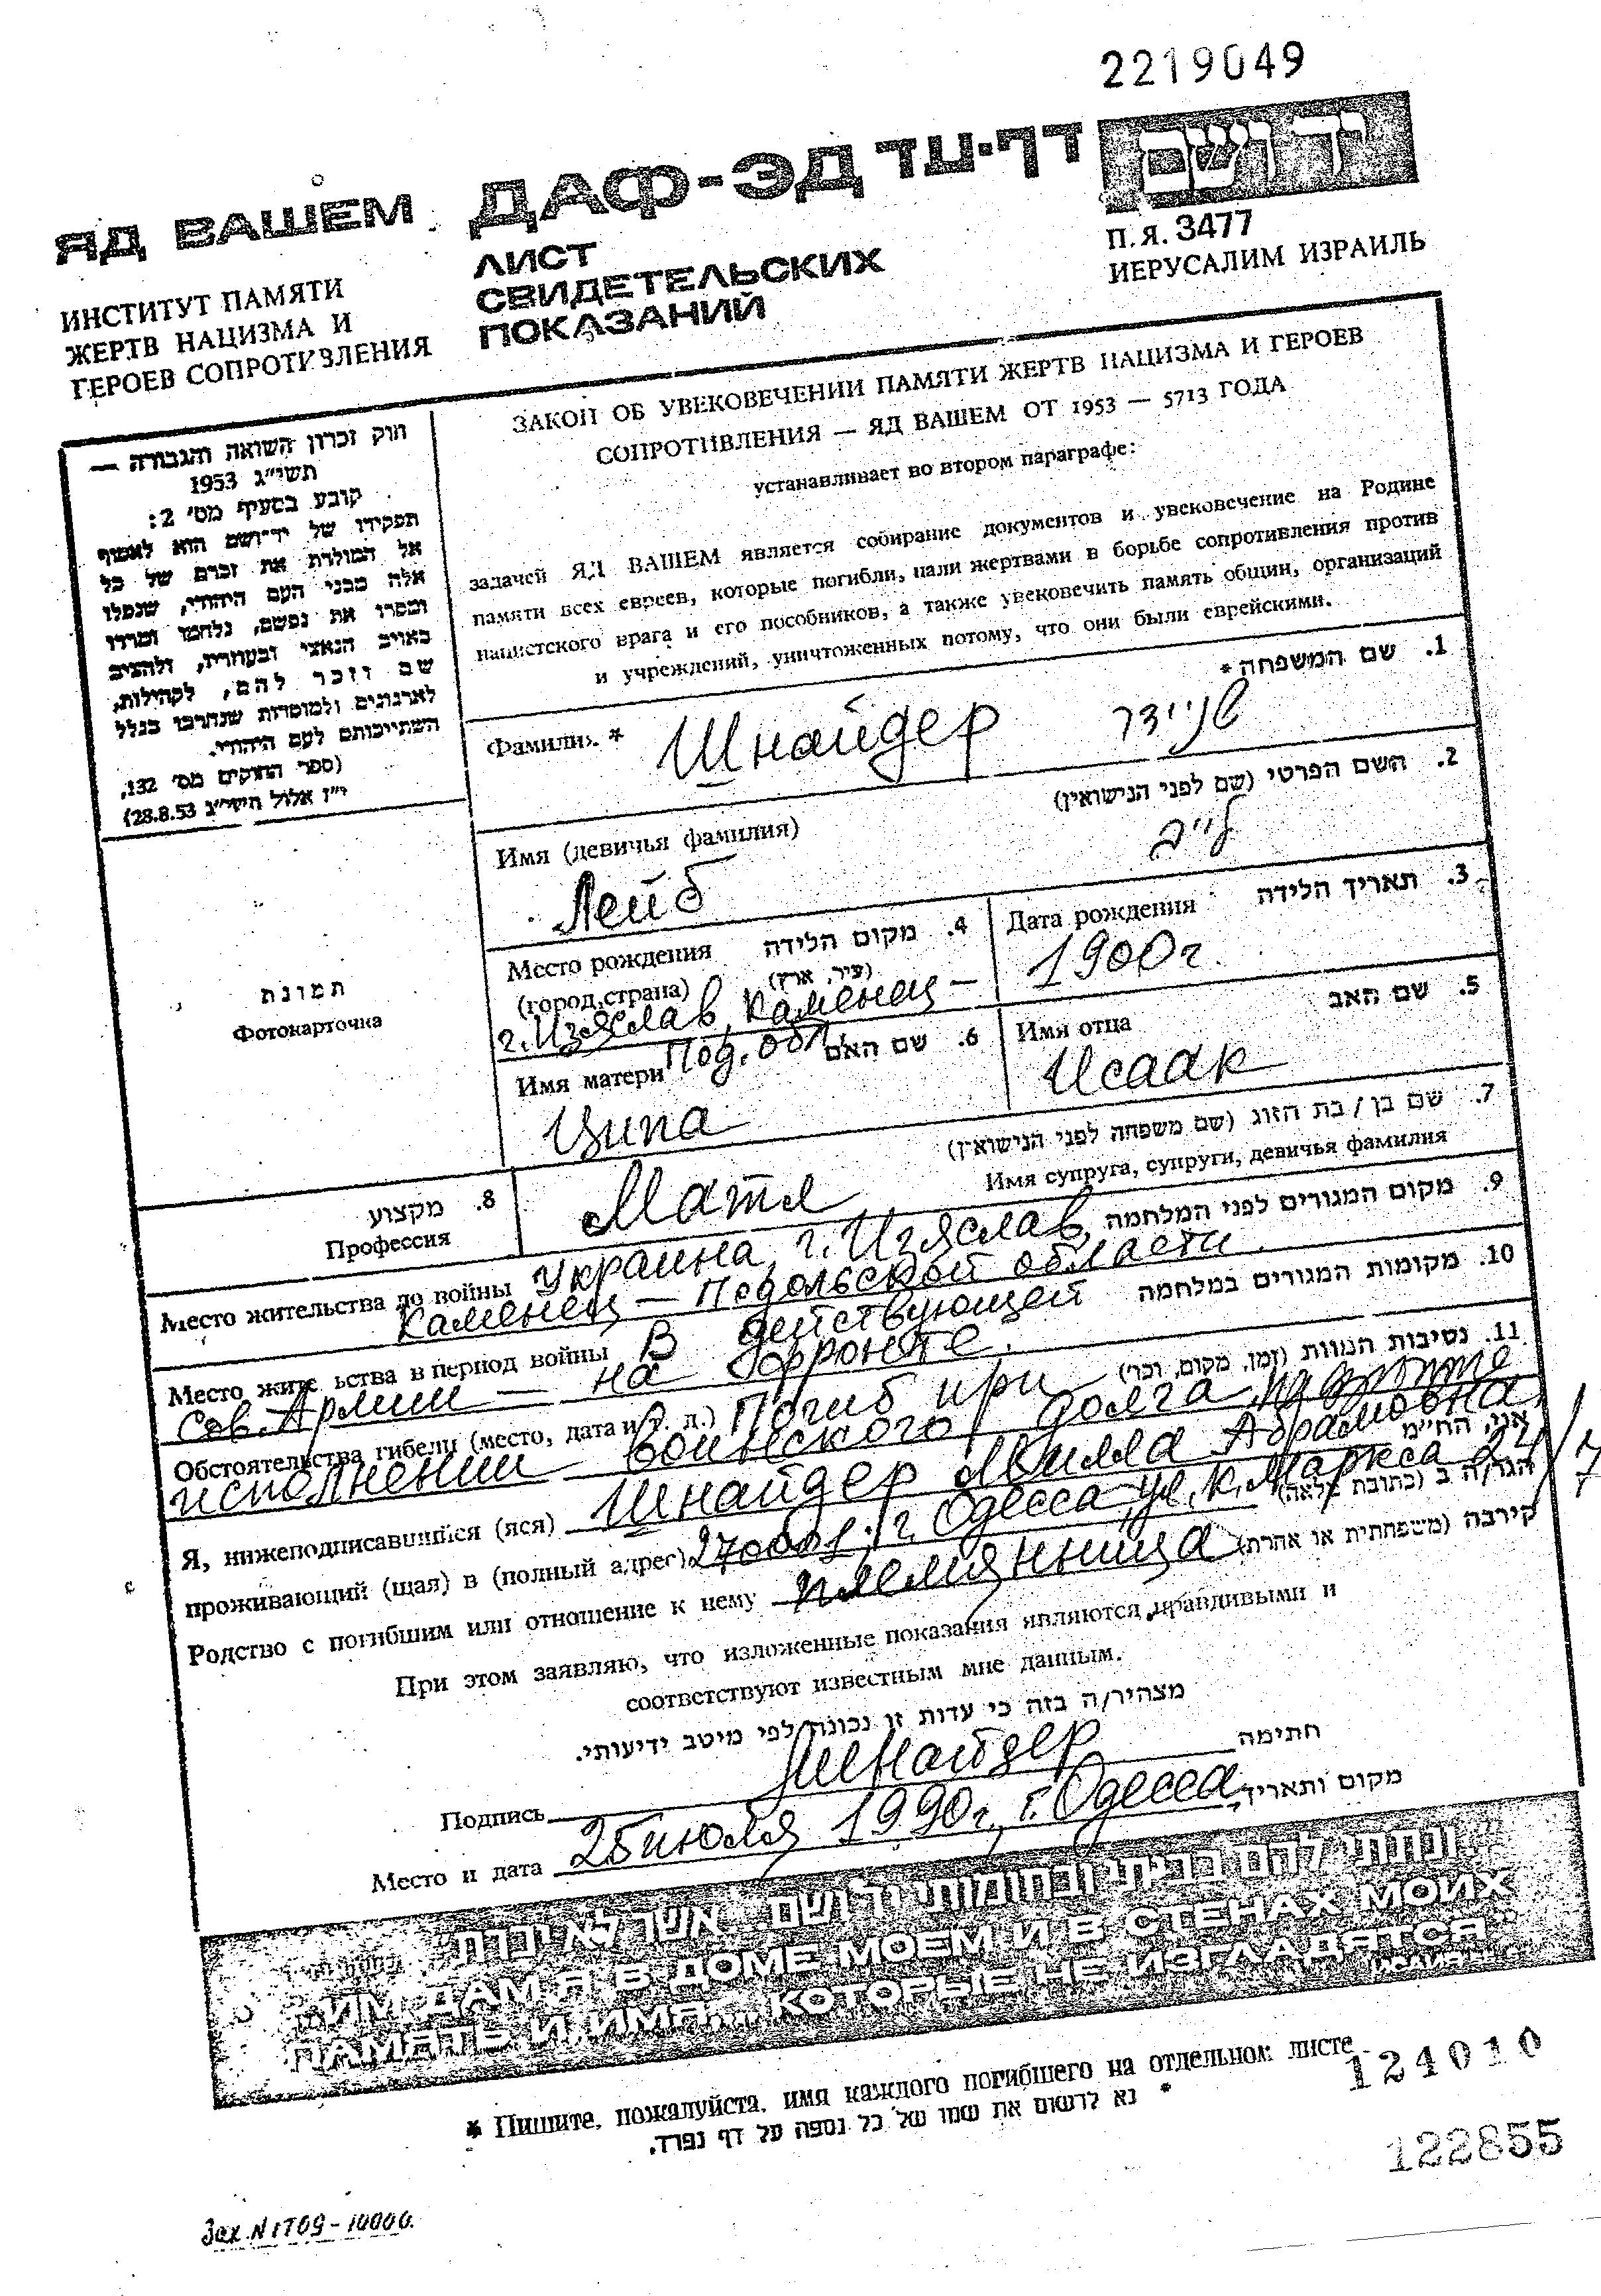 2219049
ЯД ВАШЕМ
ДАФ-ЭД דף-עד
יד ושם
ИНСТИТУТ ПАМЯТИ
ЖЕРТВ НАЦИЗМА И
ГЕРОЕВ СОПРОТИВЛЕНИЯ
ЛИСТ
СВИДЕТЕЛЬСКИХ
ПОКАЗАНИЙ
П.Я. 3477
ИЕРУСАЛИМ ИЗРАИЛЬ
חוק זכרון השואה והגבורה —
תשי"ג 1953
קובע בסעיף מס' 2:
תפקידו של יד-ושם הוא לאסוף
אל המולדת את זכרם של כל
אלה מבני העם היהודי, שנפלו
ומסרו את נפשם, נלחמו ומרדו
באויב הנאצי ובעוזריו, ולהציב
שם וזכר להם, לקהילות,
לארגונים ולמוסדות שנחרבו בגלל
השתייכותם לעם היהודי.
(ספר החוקים מס' 132,
י"ז אלול תשי"ג 28.8.53)
ЗАКОН ОБ УВЕКОВЕЧЕНИИ ПАМЯТИ ЖЕРТВ НАЦИЗМА И ГЕРОЕВ
СОПРОТИВЛЕНИЯ — ЯД ВАШЕМ ОТ 1953 — 5713 ГОДА
устанавливает во втором параграфе:
задачей ЯД ВАШЕМ является собирание документов и увековечение на Родине
памяти всех евреев, которые погибли, пали жертвами в борьбе сопротивления против
нацистского врага и его пособников, а также увековечить память общин, организаций
и учреждений, уничтоженных потому, что они были еврейскими.
1. שם המשפחה *
Фамилия * Шнайдер שניידר
2. השם הפרטי (שם לפני הנישואין)
Имя (девичья фамилия)
Лейб לייב
3. תאריך הלידה Дата рождения
1900г.
4. מקום הלידה Место рождения
(עיר, ארץ) (город, страна)
г. Изяслав, Каменец-
Под. обл.
5. שם האב
Имя отца
Исаак
6. שם האם
Имя матери
Ципа
7. שם בן / בת הזוג (שם משפחה לפני הנישואין)
Имя супруга, супруги, девичья фамилия
Матл
8. מקצוע
Профессия
תמונת
Фотокарточка
9. מקום המגורים לפני המלחמה
Место жительства до войны Украина, г. Изяслав,
Каменец-Подольской области.
10. מקומות המגורים במלחמה
Место жительства в период войны В действующей
Сов. Армии — на фронте.
11. נסיבות המוות (זמן, מקום, וכו')
Обстоятельства гибели (место, дата и т. д.) Погиб при
исполнении воинского долга на фронте
אני, הח"מ
Я, нижеподписавшийся (яся) Шнайдер Абрамовна,
הגר/ה ב (כתובת מלאה)
проживающий (щая) в (полный адрес) г. Одесса, ул. К. Маркса
קירבה (משפחתית או אחרת)
Родство с погибшим или отношение к нему племянница
При этом заявляю, что изложенные показания являются правдивыми и
соответствуют известным мне данным.
מצהיר/ה בזה כי עדות זו נכונה לפי מיטב ידיעותי.
חתימה
Подпись Шнайдер
מקום ותאריך
Место и дата 25 июля 1990г., г. Одесса
"ונתתי להם בביתי ובחומותי יד ושם... אשר לא יכרת"
„ИМ ДАМ Я В ДОМЕ МОЕМ И В СТЕНАХ МОИХ
ПАМЯТЬ И ИМЯ... КОТОРЫЕ НЕ ИЗГЛАДЯТСЯ"
* Пишите, пожалуйста, имя каждого погибшего на отдельном листе
* נא לרשום את שמו של כל נספה על דף נפרד.
124010
122855
Зак. N 1709-10000.